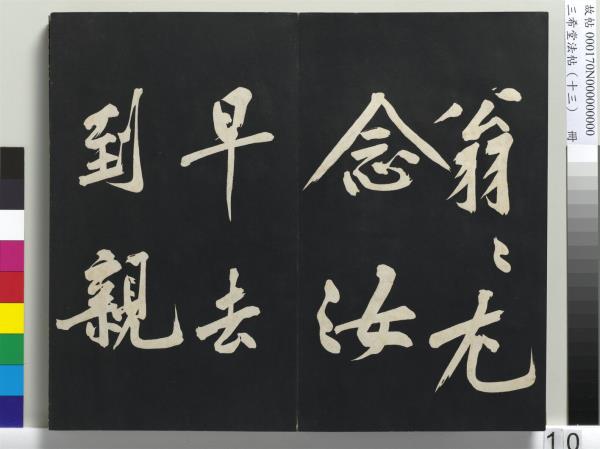 翁〻尤
念汝
早去
到親
故帖 000170N000000000
三希堂法帖（十三） 冊
10